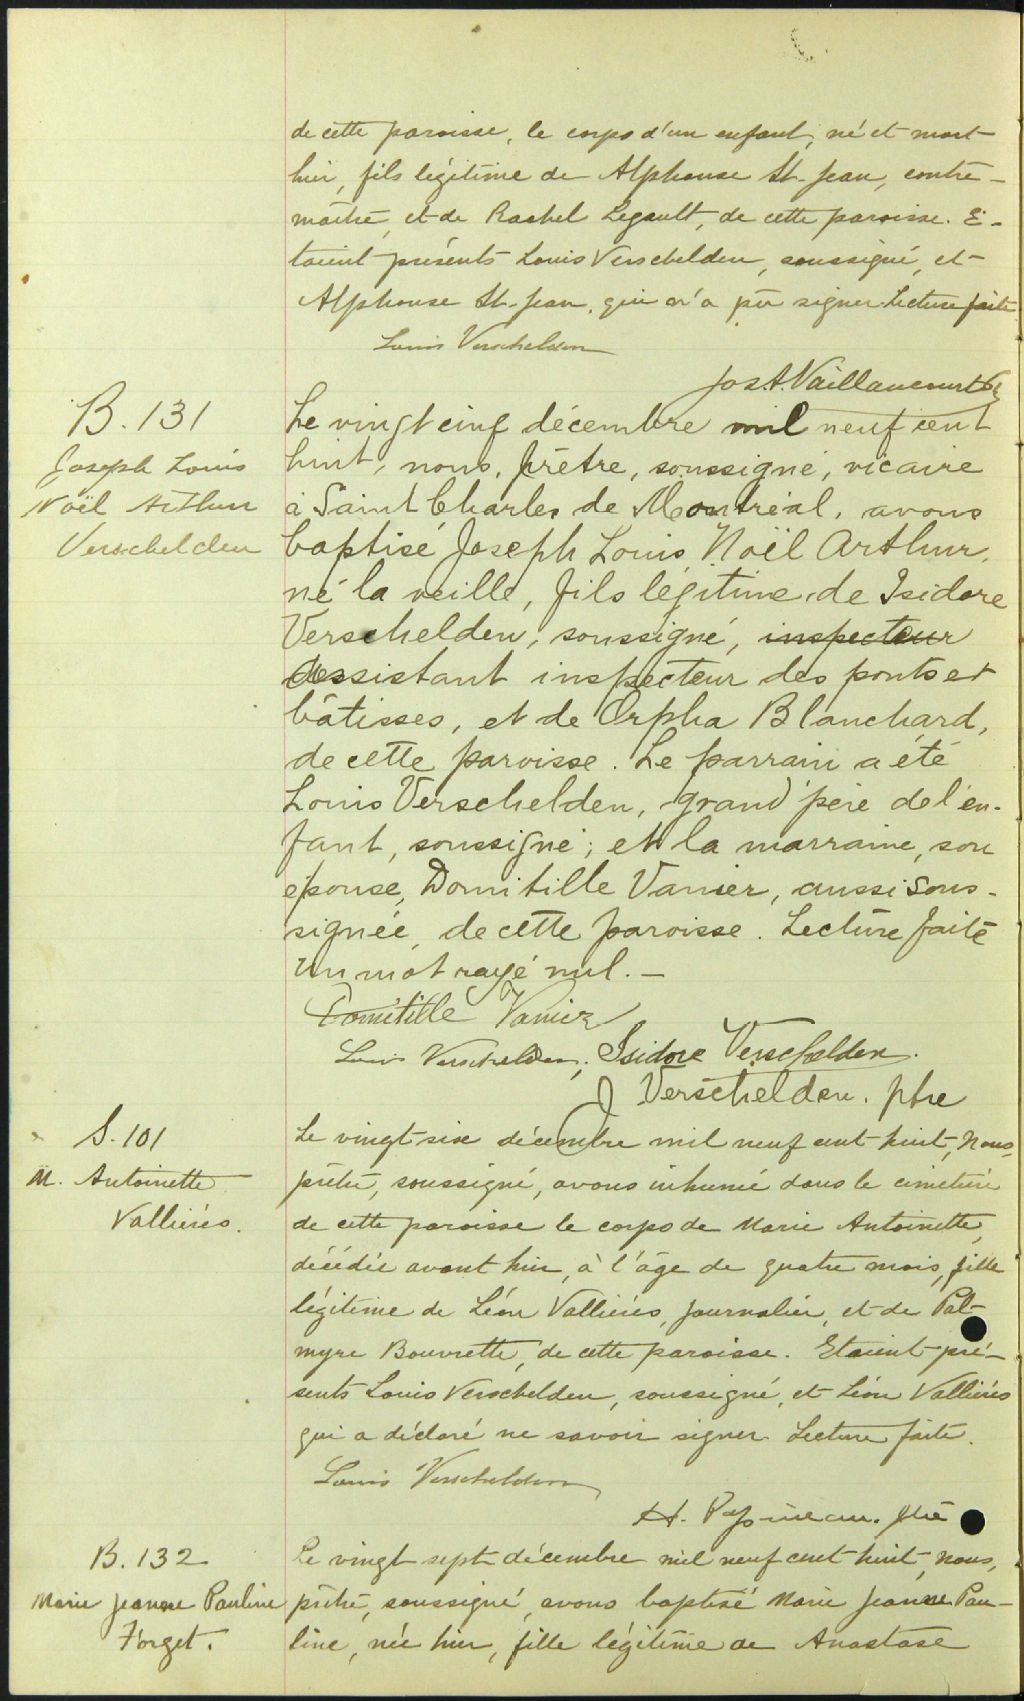 de cette paroisse, le corps d'un enfant, né et mort
hier, fils légitime de Alphonse St-Jean, contre-
maître, et de Rachel Legault, de cette paroisse. E-
taient présents Louis Verschelden, soussigné, et
Alphonse St-Jean, qui n'a pu signer. Lecture faite.
Louis Verschelden
Jos. A. Vaillancourt
B. 131
Joseph Louis
Noël Arthur
Verschelden
Le vingt cinq décembre mil neuf cent
huit, nous, prêtre, soussigné, vicaire
à Saint Charles de Montréal, avons
baptisé Joseph Louis Noël Arthur,
né la veille, fils légitime de Isidore
Verschelden, soussigné, inspecteur
assistant inspecteur des ponts et
bâtisses, et de Orpha Blanchard,
de cette paroisse. Le parrain a été
Louis Verschelden, grand'père de l'en-
fant, soussigné; et la marraine, son
épouse, Domitille Vanier, aussi sous-
signée, de cette paroisse. Lecture faite
un mot rayé nul. —
Domitille Vanier
Louis Verschelden, Isidore Verschelden.
J Verschelden. ptre
S. 101
M. Antoinette
Vallières.
Le vingt-six décembre mil neuf cent huit, Nous,
prêtre, soussigné, avons inhumé dans le cimetière
de cette paroisse le corps de Marie Antoinette,
décédée avant hier, à l'âge de quatre mois, fille
légitime de Léon Vallières, journalier, et de Pal-
myre Bouvrette, de cette paroisse. Etaient pré-
sents Louis Verschelden, soussigné, et Léon Vallières
qui a déclaré ne savoir signer. Lecture faite.
Louis Verschelden
H. Papineau. ptre
B. 132
Marie Jeanne Pauline
Forget.
Le vingt sept décembre mil neuf cent huit, nous,
prêtre, soussigné, avons baptisé Marie Jeanne Pau-
line, née hier, fille légitime de Anastase